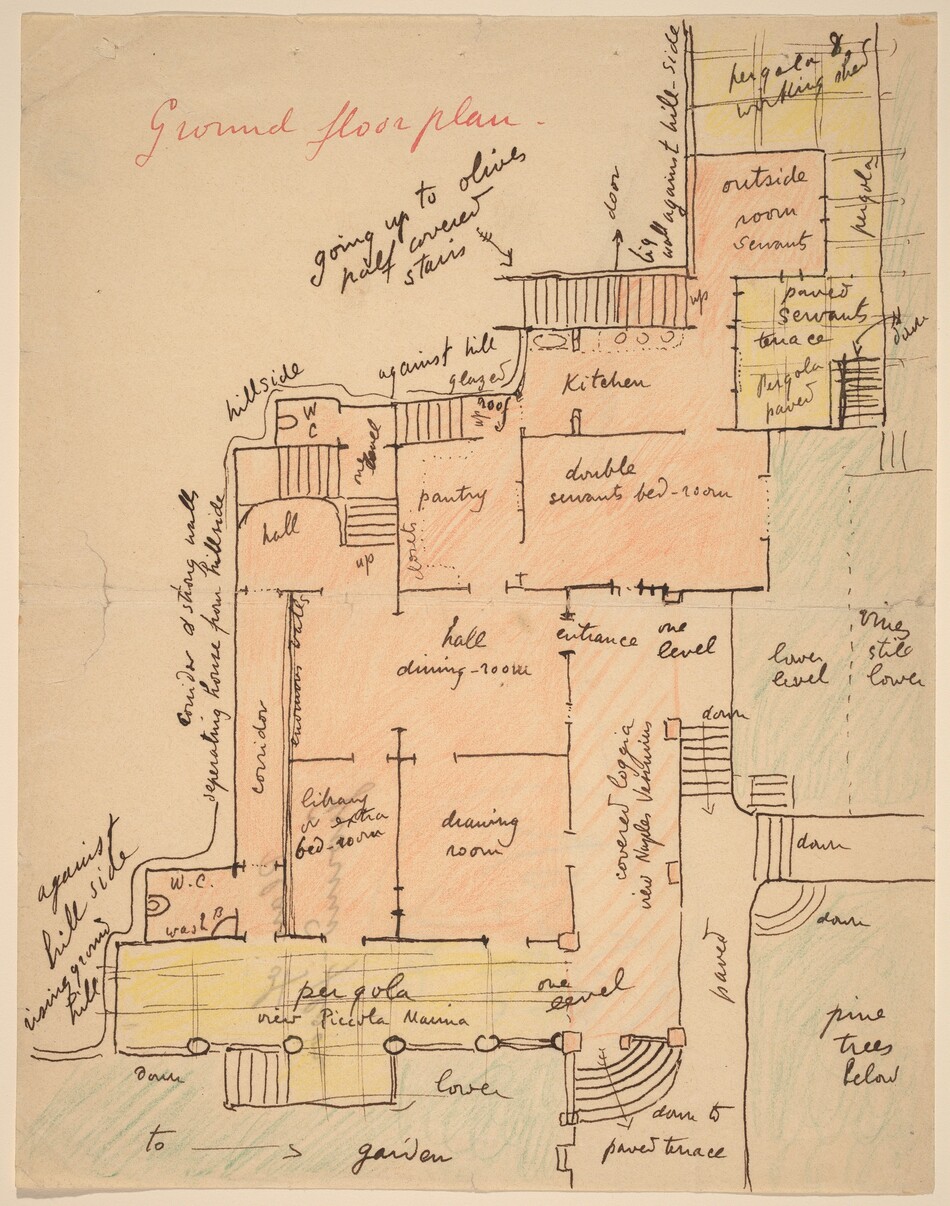 Ground floor plan.
pergola &
working shed
big
wall against hill-side
door
going up to olives
half covered
stairs
outside
room
servants
pergola
up
paved
servants
terrace
down
Pergola
paved
against hill
glazed
roof
up
hillside
W
C
one
level
Kitchen
pantry
closets
double
servants bed-room
hall
up
corridor & strong walls
seperating house from hillside
corridor
enormous walls
hall
dining-room
entrance
one
level
lower
level
vines
still
lower
down
library
or extra
bed-room
drawing
room
covered loggia
view Naples Vesuvius
down
down
paved
W.C.
wash B
against
hill side
rising ground
hill
pergola
view Piccola Marina
one
level
pine
trees
below
down
lower
down to
paved terrace
to
garden